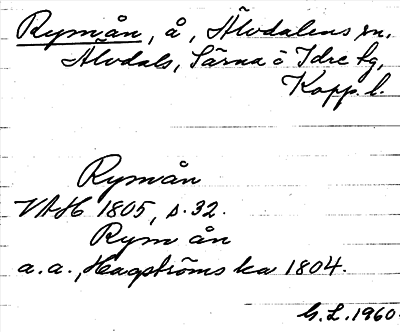 Rymån, å, Älvdalens sn,
Älvdals, Särna o Idre tg,
Kopp. l.
Rymån
VAH 1805, s. 32.
Rym ån
a.a., Hagströms ka 1804.
G.L. 1960.